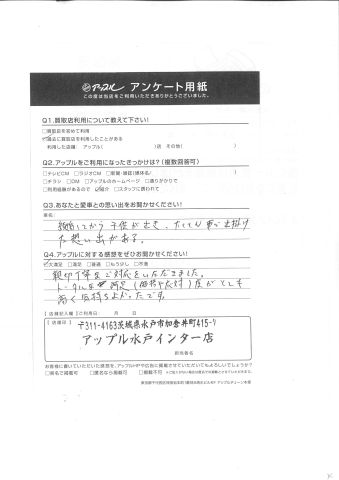 アップル アンケート用紙
この度は当店をご利用いただきありがとうございました。
Q1.買取店利用について教えて下さい!
□買取店を初めて利用
☑過去に買取店を利用したことがある
利用した店舗( アップル( )店 その他( )
Q2.アップルをご利用になったきっかけは?(複数回答可)
□テレビCM □ラジオCM □新聞・雑誌(媒体名)( )
□チラシ □DM □アップルのホームページ □通りがかりで
□利用経験があるので ☑紹介 □スタッフに誘われて
Q3.あなたと愛車との思い出をお聞かせください!
車名:
結婚してから 子供が出き、たくさん 車で出掛け
た想い出がある。
Q4.アップルに対する感想をぜひお聞かせください!
☑大満足 □満足 □普通 □もう少し □不満
親切丁寧なご対応をいただきました。
トータル 満足(価格や応対)度がとても
高く気持ちよかったです。
[店舗記入欄](ご利用日: 月 日)
[店舗印]
〒311-4163茨城県水戸市加倉井町415-1
アップル水戸インター店
担当者名
お客様に書いていただいた感想を、アップルHPや広告に掲載させていただいてもよろしいでしょうか?
□実名で掲載可 □匿名なら掲載可 □掲載不可